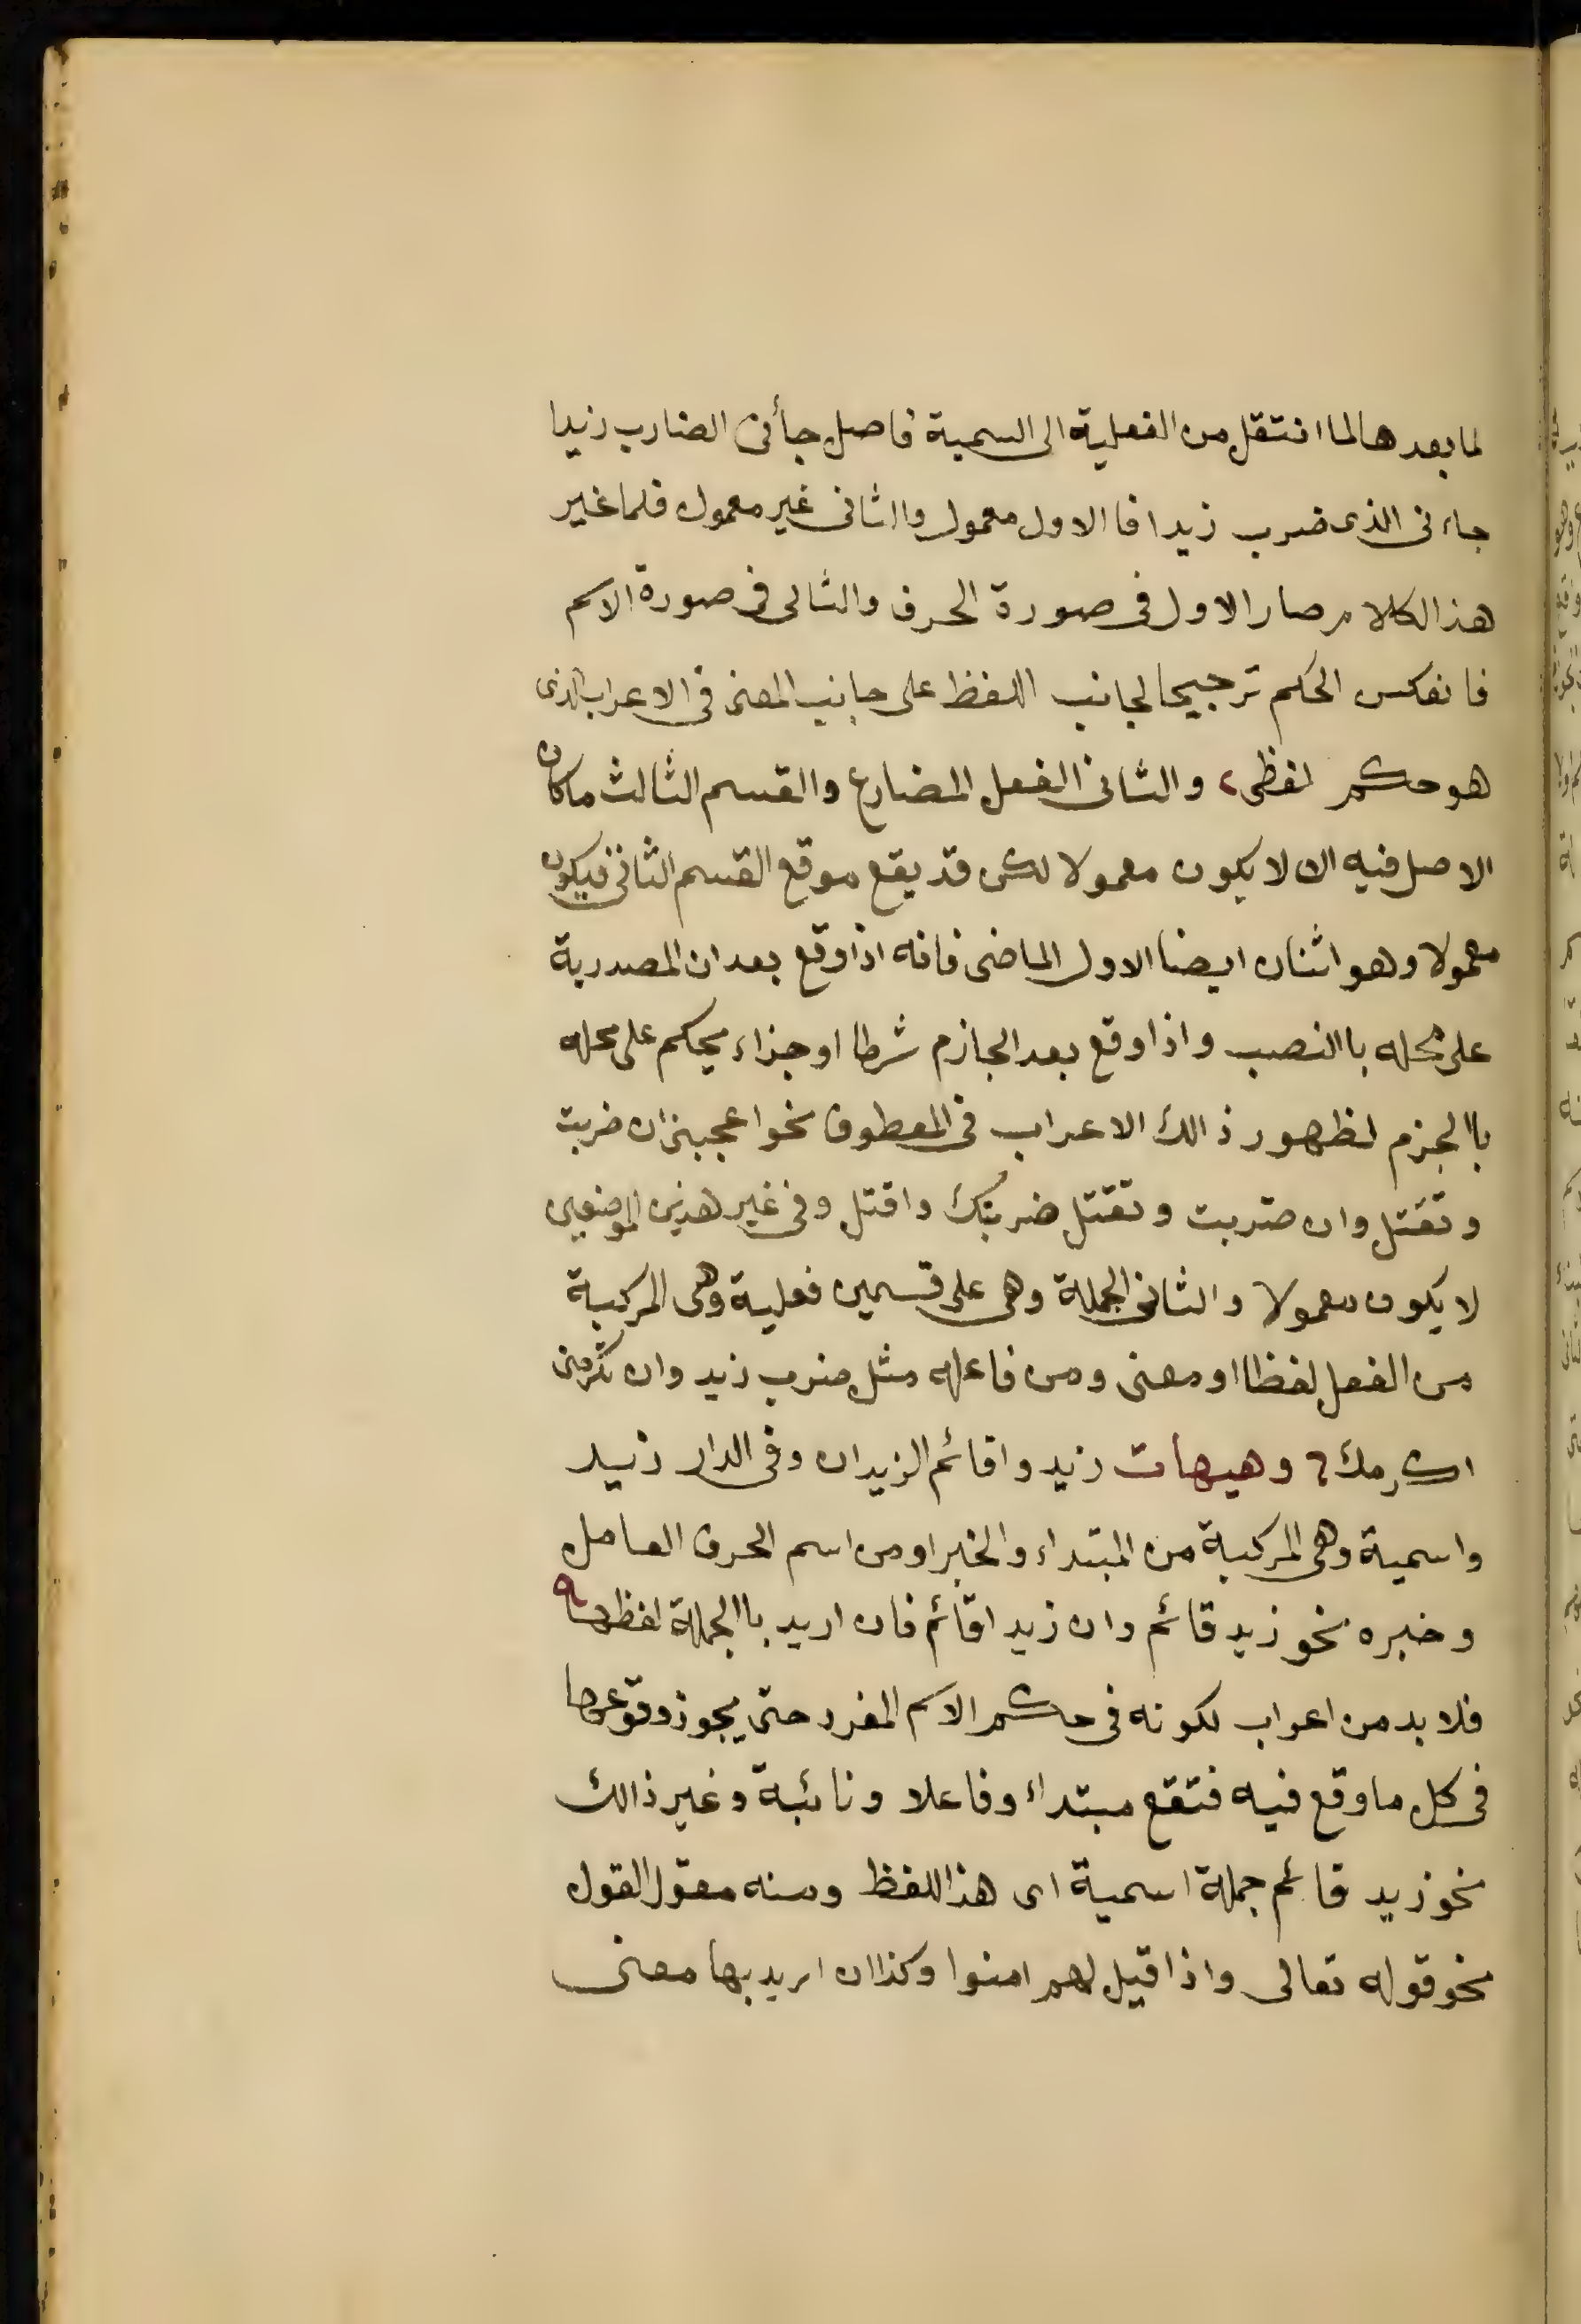 لما بعدها لما انتقل من الفعلية الى السمية فاصل جأنى الضارب زيدا
جاءنى الذى ضرب زيدا فا الاول معمول والثانى غير معمول فلما غير
هذ الكلام صار الاول فى صورة الحرف والثانى فى صورة الاسم
فانعكس الحكم ترجيحا لجانب اللفظ على جانب المعنى فى الاعراب الذى
هو حكم لفظى، والثانى الفعل المضارع والقسم الثالث ما كان
الاصل فيه ان لا يكون معمولا لكن قد يقع موقع القسم الثانى فيكون
معمولا وهو اثنان ايضا الاول الماضى فانه اذا وقع بعد ان المصدرية
على محله با النصب واذا وقع بعد الجازم شرطا او جزاء يحكم على محله
با الجزم لظهور ذالك الاعراب فى المعطوف نحو اعجبنى ان ضربت
وتقتل وان ضربت وتقتل ضربتك واقتل وفى غير هذين الموضعين
لا يكون معمولا والثانى الجملة وهى على قسمين فعلية وهى المركبة
من الفعل لفظا او معنى ومن فاعله مثل ضرب زيد وان تكرمنى
اكرمك وهيهات زيد واقائم الزيدان وفى الدار زيد
واسمية وهى المركبة من المبتداء والخبر او من اسم الحرف العامل
وخبره نحو زيد قائم وان زيدا قائم فان اريد با الجملة لفظها
فلا بد من اعراب لكونه فى حكم الاسم المفرد حتى يجوز وقوعها
فى كل ما وقع فيه فتقع مبتداء وفاعلا ونائبة وغير ذالك
نحو زيد قائم جملة اسمية اى هذ اللفظ ومنه مقول القول
نحو قوله تعالى واذا قيل لهم امنوا وكذا ان اريد بها معنى